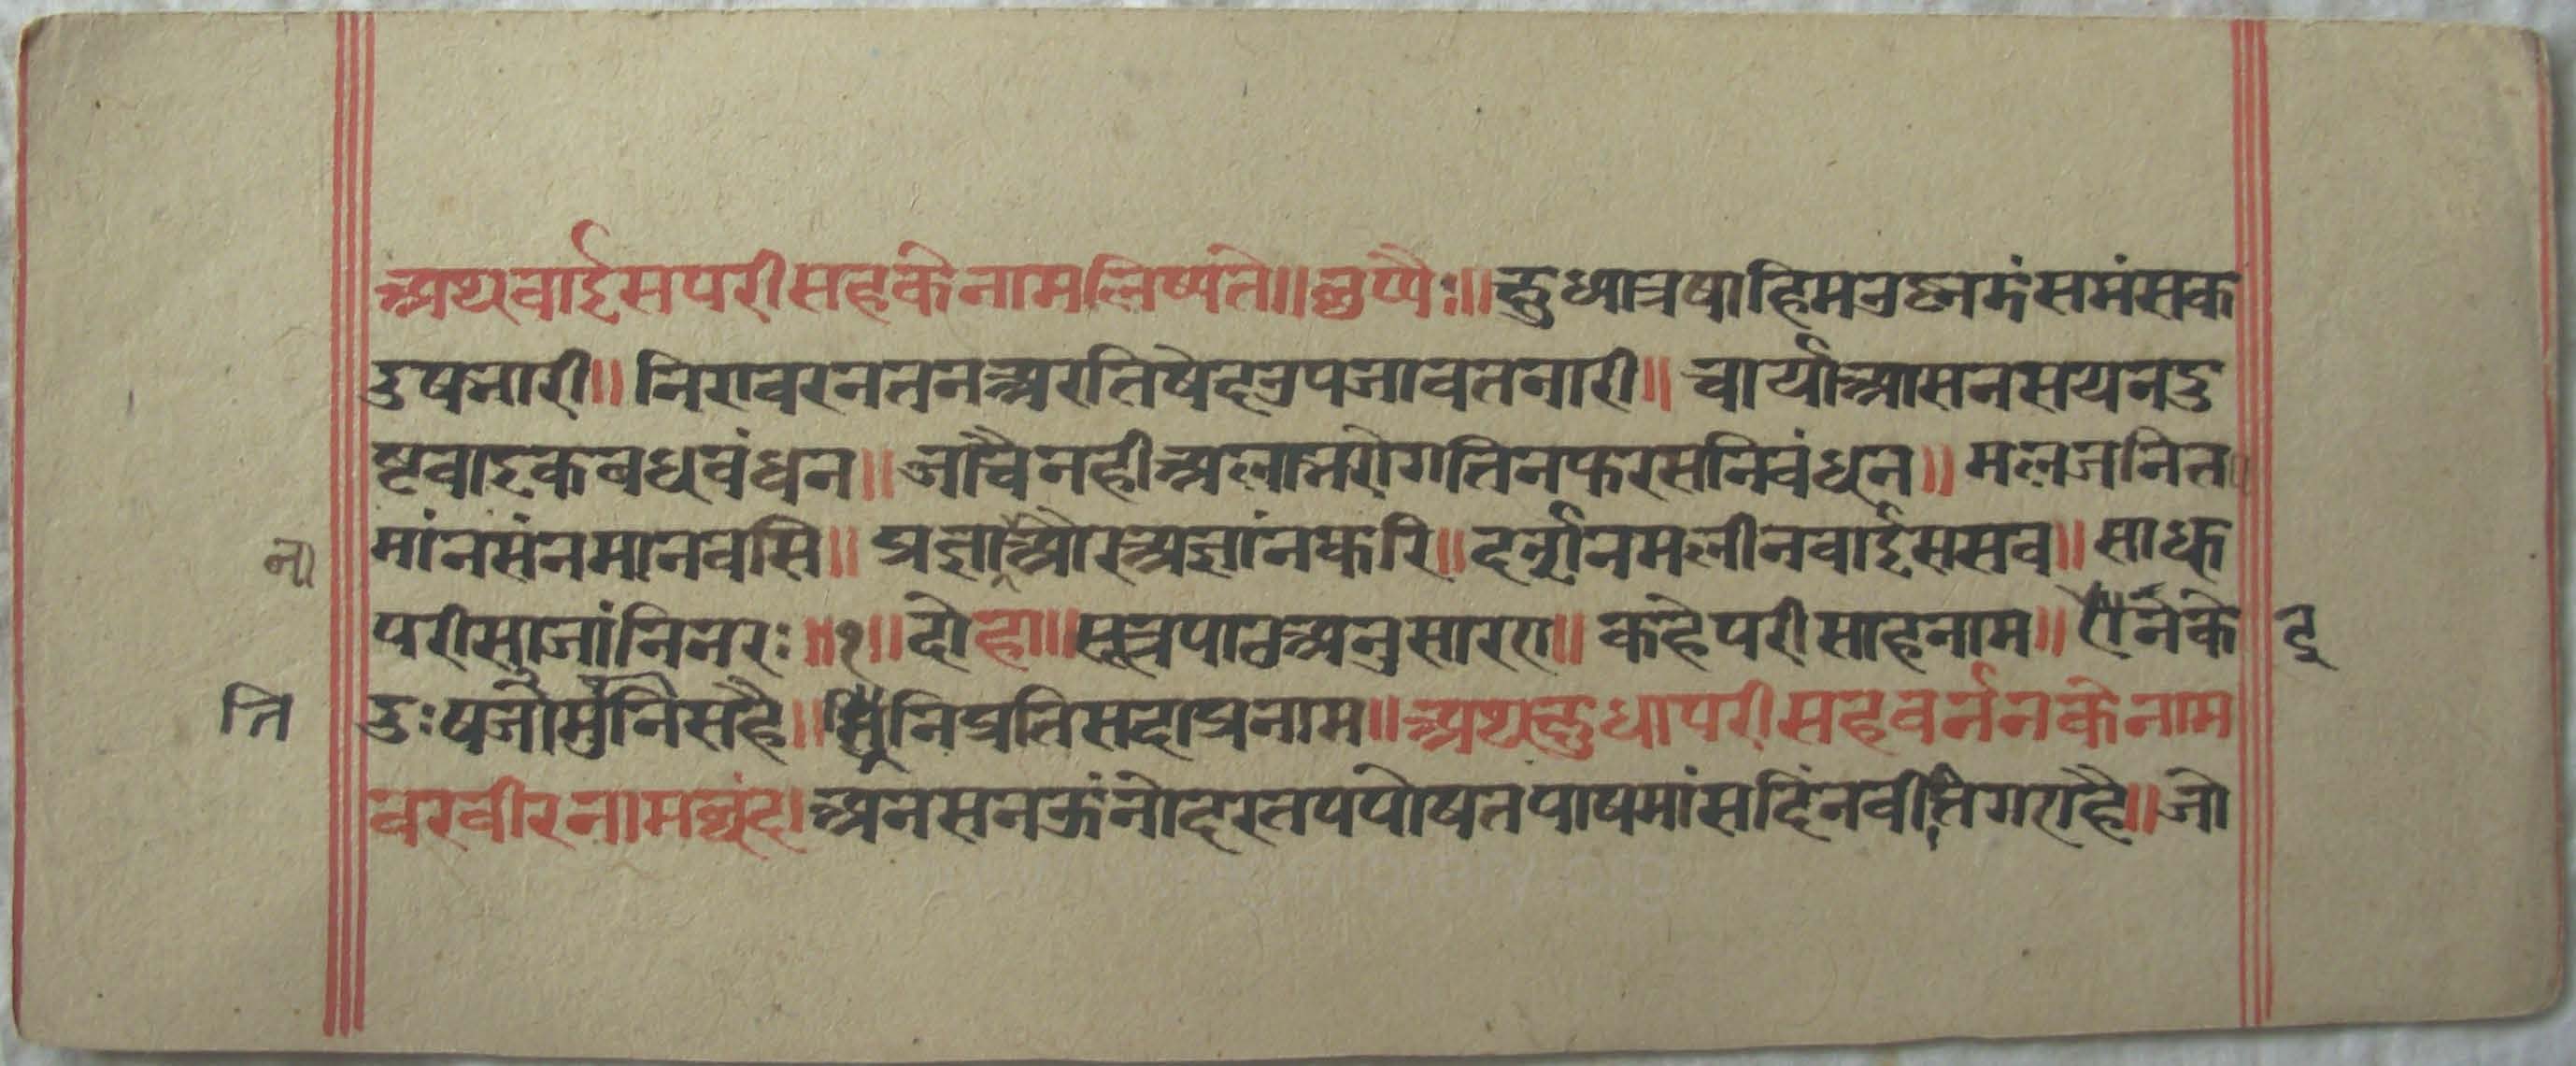 अथवाईसपरीसहकेनामलिष्यते॥छप्पैः॥क्षुधात्रषाहिमउस्नदंसमंसक
दुषनारी॥निरावरनतनअरतिषेदउपजावतनारी॥चार्याआसनसयनदु
ष्टवाइकबधवंधन॥जाचैनहीअलाभरोगतिनफरसनिवंधन॥मलजनित
मांनसंनमानवसि॥प्रज्ञाऔरअज्ञांनकरि॥दर्शनमलीनवाईससव॥साधु
ना
परीसाजांनिनरः॥१॥दोहा॥सूत्रपाठअनुसारए॥कहेपरीसाहनाम॥तिनके
दु
दुःषजोमुनिसहै॥मुनिप्रतिसदाप्रनाम॥अथक्षुधापरीसहवर्ननकेनाम
ति
वरवीरनामछंद।अनसनऊंनोदरतपपोषतपाषमांसदिनवीतिगएहै॥जो